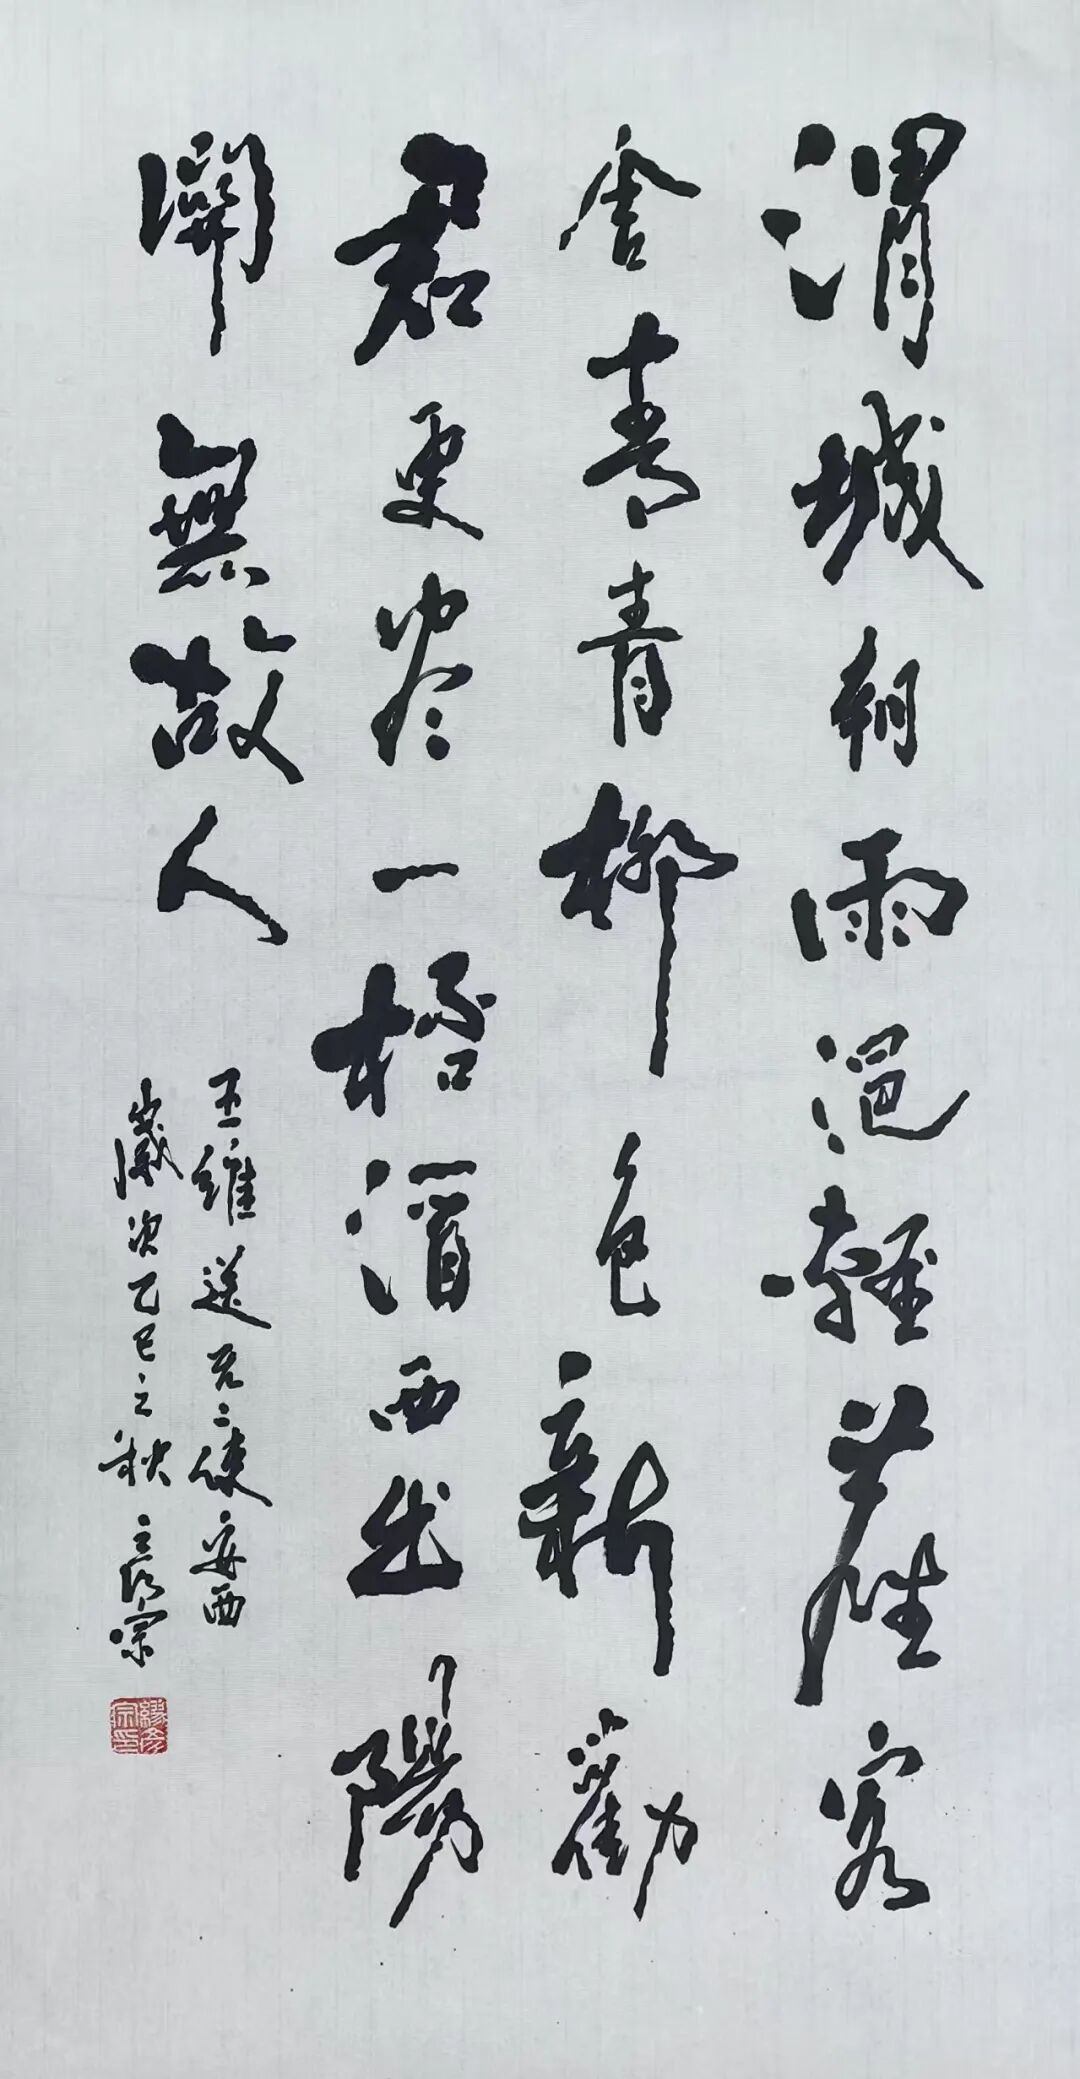 渭城朝雨浥輕塵客
舍青青柳色新勸
君更尽一桮酒西出陽
關無故人
王維送元二使安西
歲次乙巳之秋 彥宗
繆彥宗印